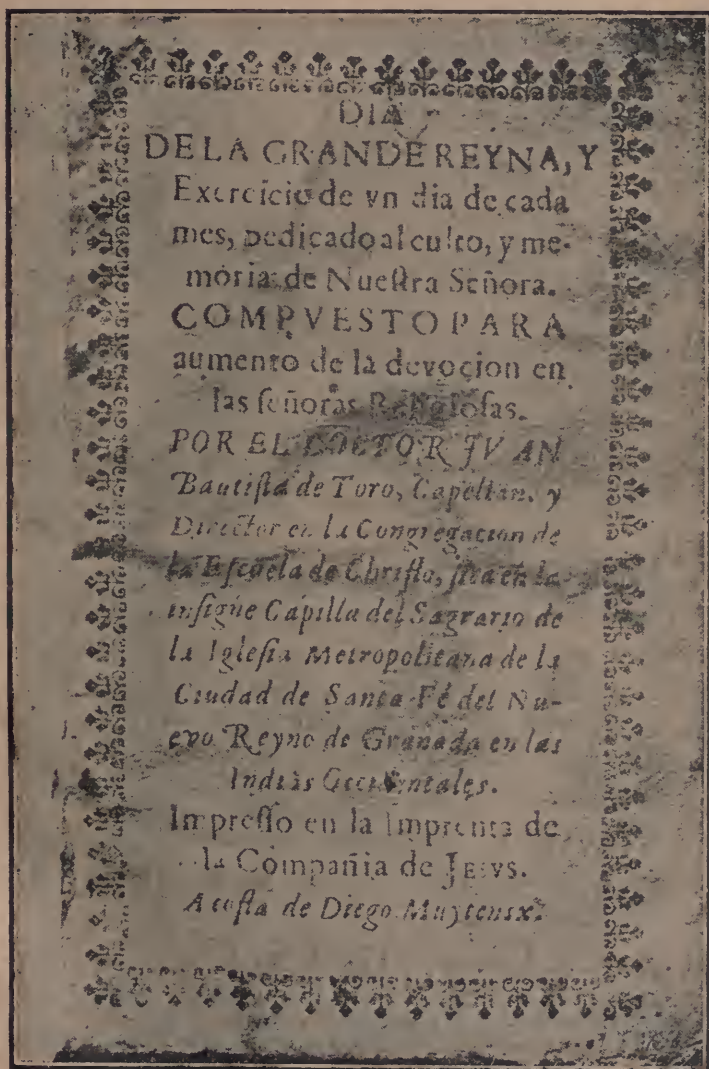 DIA
DE LA GRANDE REYNA, Y
Exercicio de vn dia de cada
mes, dedicado al culto, y me-
moria de Nueſtra Señora.
COMPVESTO PARA
aumento de la devocion en
las ſeñoras Religioſas.
POR EL DOCTOR JVAN
Bautiſta de Toro, Capellan, y
Director en la Congregacion de
la Eſcuela de Chriſto, ſita en la
inſigne Capilla del Sagrario de
la Igleſia Metropolitana de la
Ciudad de Santa Fé del Nu-
evo Reyno de Granada en las
Indias Occidentales.
Impreſſo en la Imprenta de
la Compañia de JESVS.
A coſta de Diego